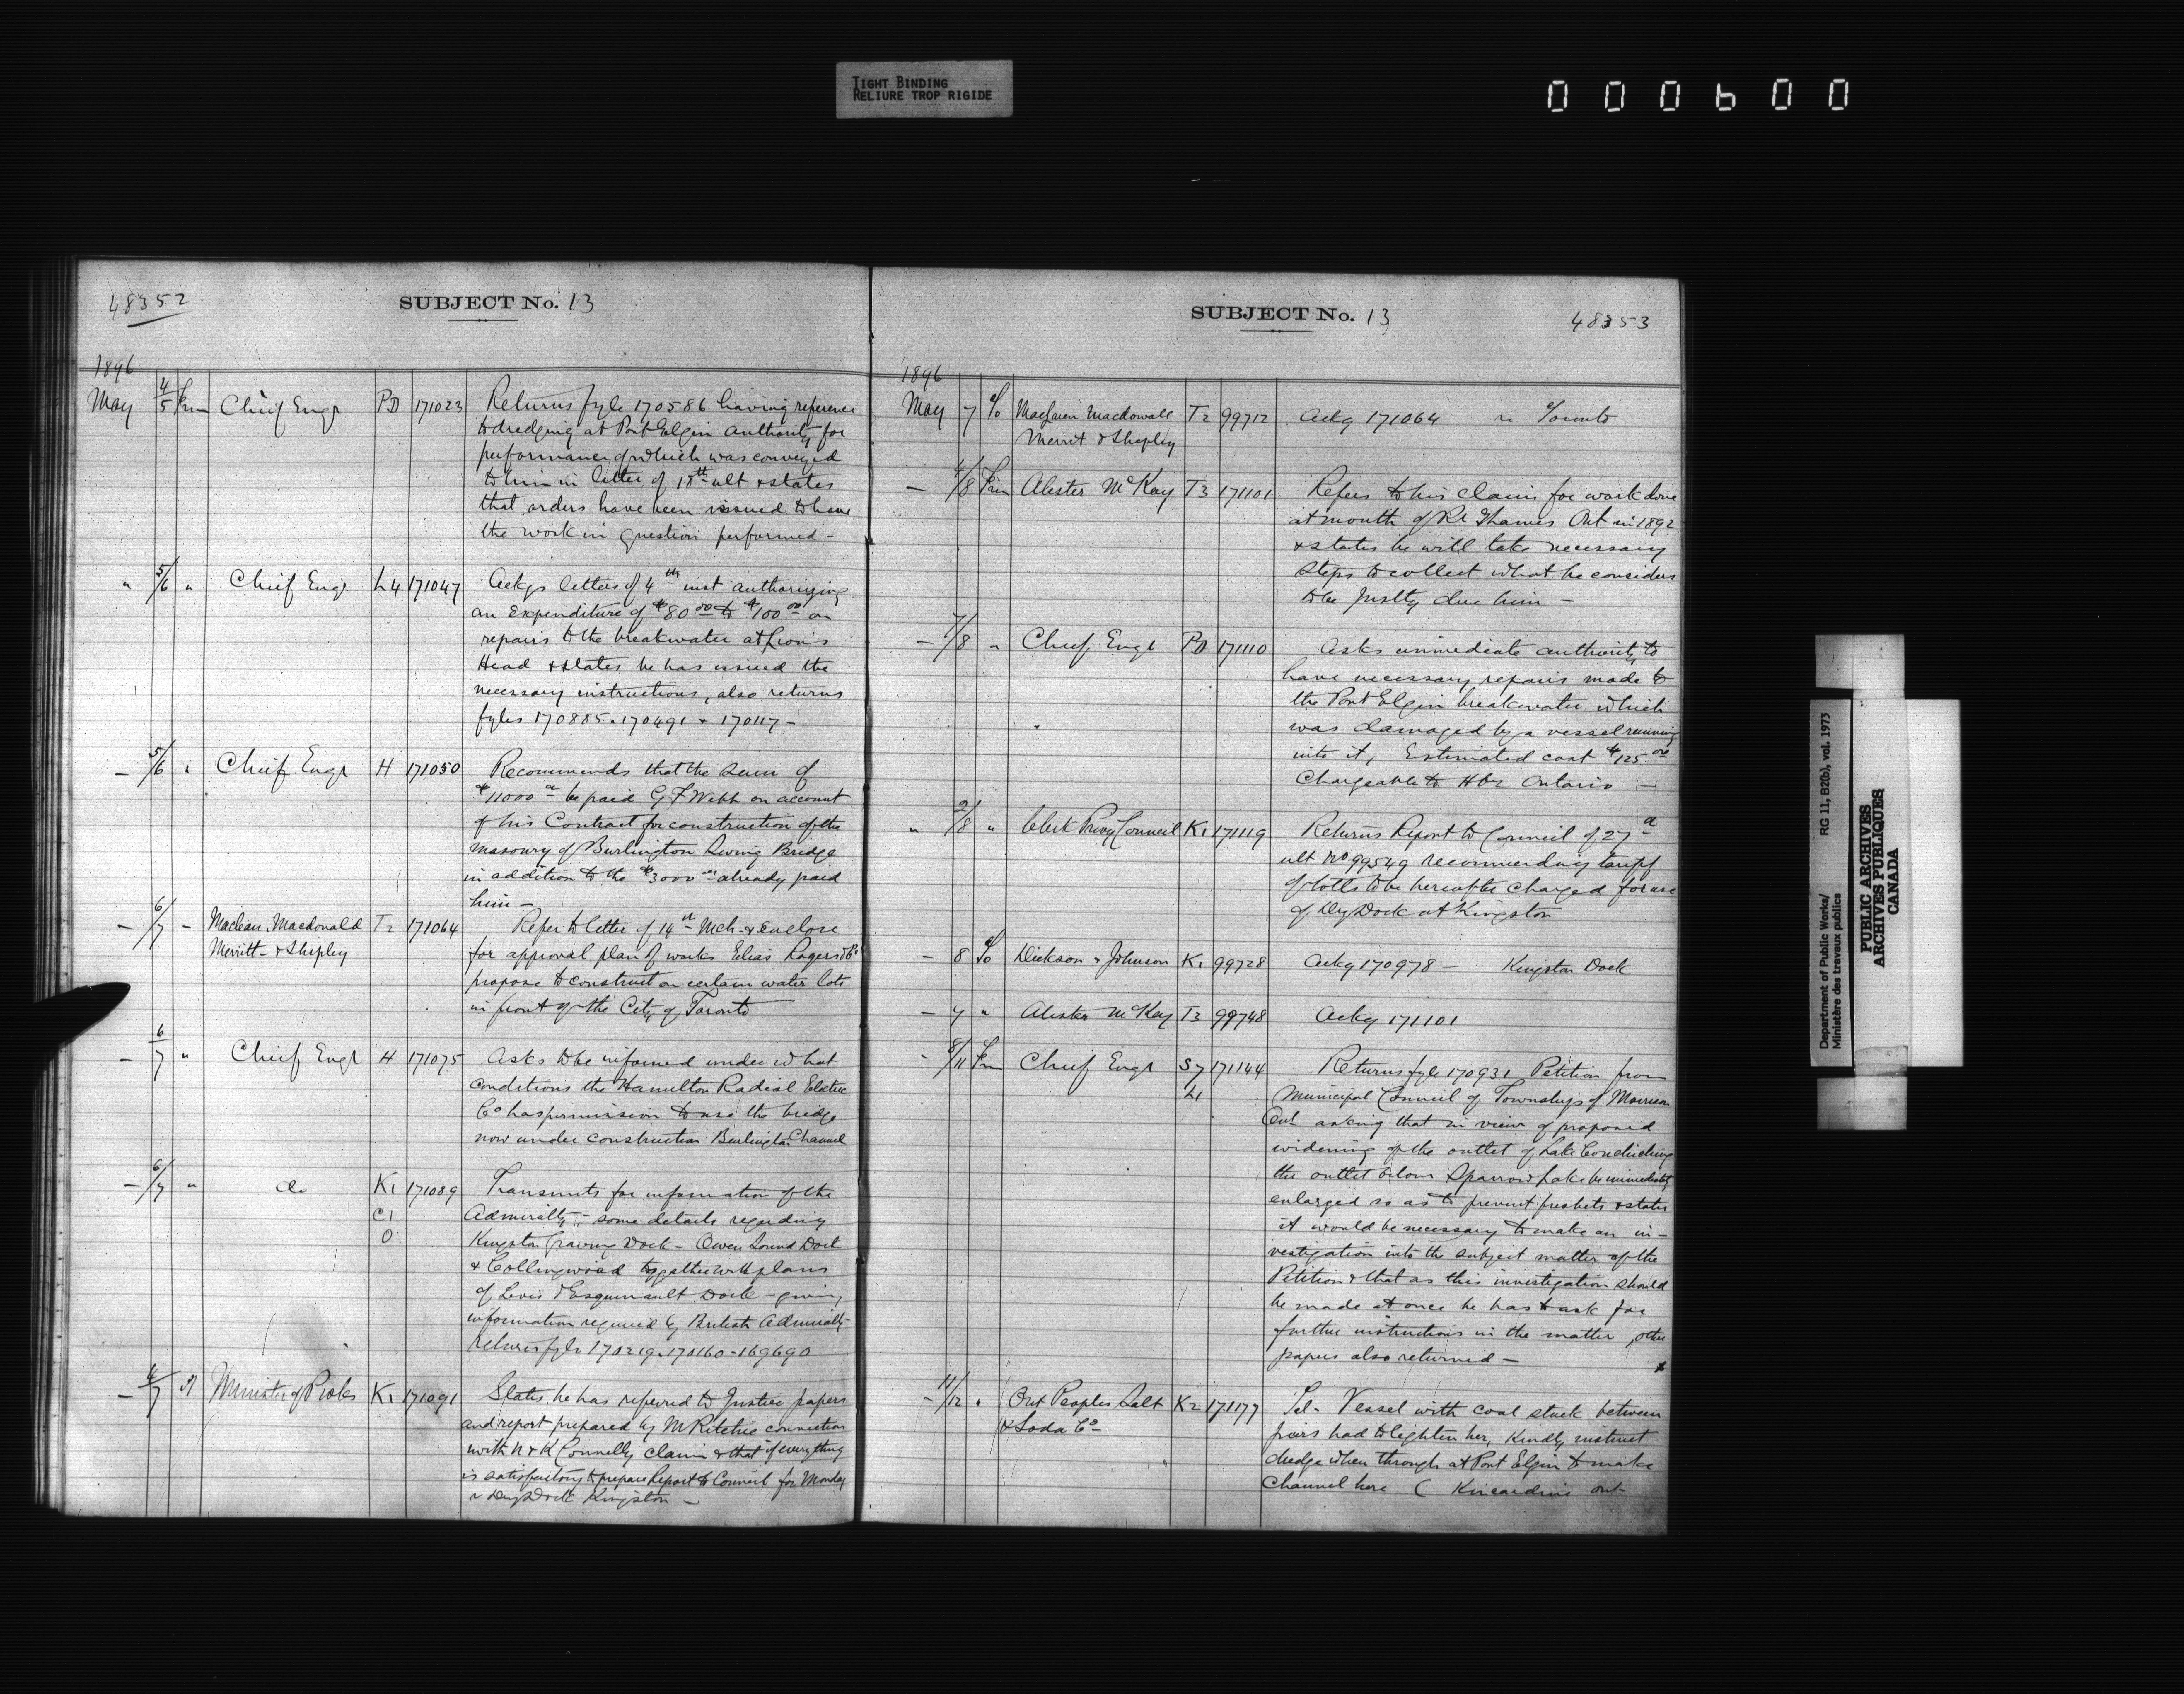 TIGHT BINDING
RELIURE TROP RIGIDE
000600
48352
SUBJECT No. 13
1896
May 4/5 Frm Chief Engr PD 171023 Returns fyle 170586 having reference
to dredging at Port Elgin authority for
performance of which was conveyed
to him in letter of 18th ult & states
that orders have been issued to have
the work in question performed -
" 5/6 " Chief Engr L4 171047 Ackgs letters of 4th inst authorizing
an Expenditure of $80 00 to $100 00 on
repairs to the breakwater at Lion's
Head & states he has issued the
necessary instructions, also returns
fyles 170885 . 170491 & 170117 -
- 5/6 " Chief Engr H 171050 Recommends that the sum of
$11000 00 be paid G F Webb on account
of his Contract for construction of the
masonry of Burlington Swing Bridge
in addition to the $3000 00 already paid
him -
- 6/7 - Maclean, Macdonald T2 171064 Refer to letter of 14th Mch & Enclose
Merritt & Shepley for approval plan of works Elias Rogers & Co
propose to construct on certain water lots
in front of the City of Toronto
- 6/7 " Chief Engr H 171075 Asks to be informed under what
conditions the Hamilton Radial Electric
Co has permission to use the bridge
now under construction Burlington Channel
- 6/7 " do K1 171089 Transmits for information of the
C1 Admiralty, - some details regarding
O Kingston Graving Dock - Owen Sound Dock
& Collingwood together with plans
of Levis & Esquimault Dock - giving
information required by British Admiralty
Returns fyle 170219 . 170160 - 169690
- 6/7 Minister of P Wks K1 171091 States he has referred to Justice papers
and report prepared by Mr Ritchie connection
with N & K Connolly claim & that if everything
is satisfactory to prepare Report to Council for Monday
r Dry Dock Kingston -
SUBJECT No. 13
48353
1896
May 7 To MacLaren Macdowall T2 99712 Ackg 171064 re Toronto
Merrit & Shepley
- /8 Frm Alister McKay T3 171101 Refers to his claim for work done
at mouth of Rr Thames Ont in 1892
& states he will take necessary
steps to collect what he considers
to be Justly due him -
- 7/8 " Chief Engr PD 171110 Asks immediate authority to
have necessary repairs made to
the Port Elgin breakwater which
was damaged by a vessel running
into it, Estimated cost $125 00
Chargeable to Hbr Ontario -
" 2/8 " Clerk Privy Council K1 171119 Returns Report to Council of 27
ult No 99549 recommending tariff
of tolls to be hereafter charged for use
of Dry Dock at Kingston
- 8 To Dickson & Johnson K1 99728 Ackg 170978 - Kingston Dock
- 7 " Alister McKay T3 99748 Ackg 171101
- 8/11 Frm Chief Engr S7 171144 Returns fyle 170931 Petition from
L1 Municipal Council of Townships of Morrison
Ont asking that in view of proposed
widening of the outlet of Lake Couchiching
the outlet below Sparrow Lake be immediately
enlarged so as to prevent freshets & states
it would be necessary to make an in-
vestigation into the subject matter of the
Petition & that as this investigation should
be made at once he has to ask for
further instructions in the matter, other
papers also returned -
- 11/12 " Ont Peoples Salt K2 171177 Tel - Vessel with coal stuck between
& Soda Co piers had to lighten her, Kindly instruct
dredge when through at Port Elgin to make
Channel here ( Kincardine Ont
Department of Public Works/
Ministère des travaux publics
RG 11, B2(b), vol. 1973
PUBLIC ARCHIVES
ARCHIVES PUBLIQUES
CANADA